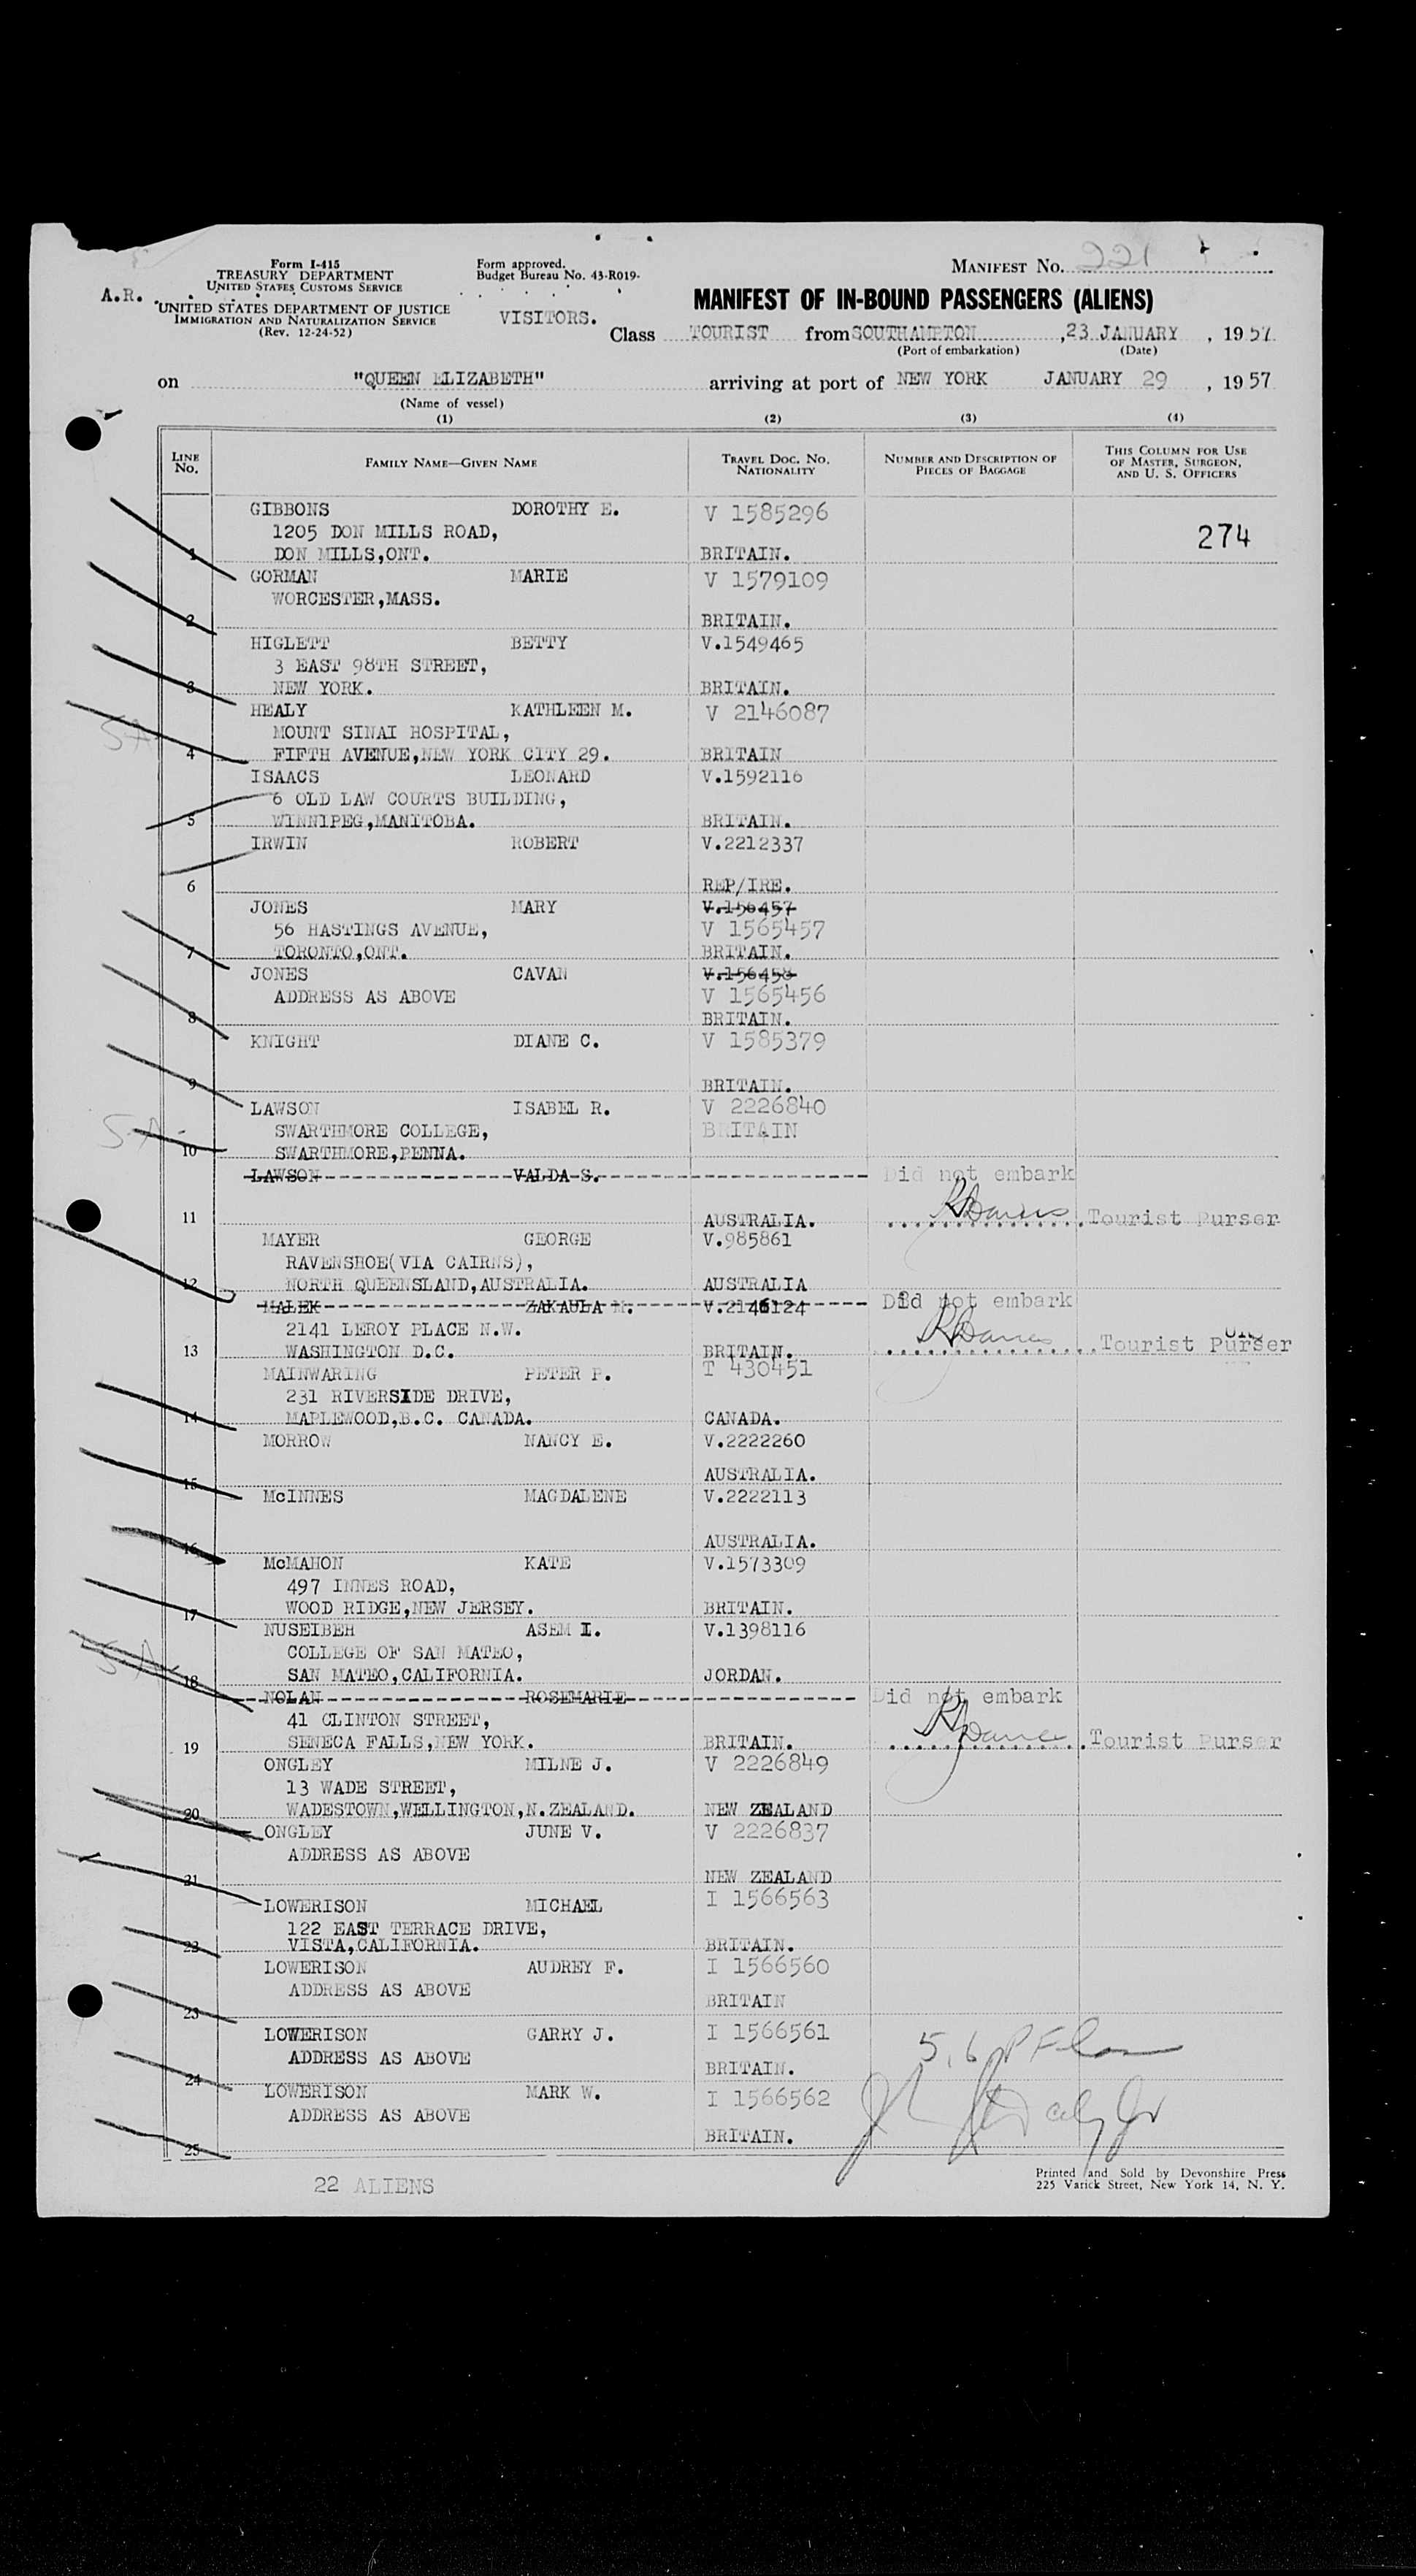 MANIFEST NO. 221
Form I-415
TREASURY DEPARTMENT
UNITED STATES CUSTOMS SERVICE
Form approved.
Budget Bureau No. 43-R019-
A.R.
UNITED STATES DEPARTMENT OF JUSTICE
IMMIGRATION AND NATURALIZATION SERVICE
(Rev. 12-24-52)
VISITORS.
MANIFEST OF IN-BOUND PASSENGERS (ALIENS)
Class TOURIST from SOUTHAMPTON, 23 JANUARY, 1957
(Port of embarkation) (Date)
on "QUEEN ELIZABETH" arriving at port of NEW YORK JANUARY 29, 1957
(Name of vessel)
(1) (2) (3) (4)
LINE NO. FAMILY NAME—GIVEN NAME TRAVEL DOC. NO. NATIONALITY NUMBER AND DESCRIPTION OF PIECES OF BAGGAGE THIS COLUMN FOR USE OF MASTER, SURGEON, AND U. S. OFFICERS
GIBBONS DOROTHY E. V 1585296
1205 DON MILLS ROAD, 274
1 DON MILLS,ONT. BRITAIN.
GORMAN MARIE V 1579109
WORCESTER,MASS.
2 BRITAIN.
HIGLETT BETTY V.1549465
3 EAST 98TH STREET,
3 NEW YORK. BRITAIN.
HEALY KATHLEEN M. V 2146087
SA MOUNT SINAI HOSPITAL,
4 FIFTH AVENUE,NEW YORK CITY 29. BRITAIN
ISAACS LEONARD V.1592116
6 OLD LAW COURTS BUILDING,
5 WINNIPEG,MANITOBA. BRITAIN.
IRWIN ROBERT V.2212337
6 REP/IRE.
JONES MARY V.156457
56 HASTINGS AVENUE, V 1565457
7 TORONTO,ONT. BRITAIN.
JONES CAVAN V.156458
ADDRESS AS ABOVE V 1565456
8 BRITAIN.
KNIGHT DIANE C. V 1585379
9 BRITAIN.
LAWSON ISABEL R. V 2226840
S.A. SWARTHMORE COLLEGE, BRITAIN
10 SWARTHMORE,PENNA.
LAWSON VALDA S. Did not embark
11 AUSTRALIA. Tourist Purser
MAYER GEORGE V.985861
RAVENSHOE(VIA CAIRNS),
12 NORTH QUEENSLAND,AUSTRALIA. AUSTRALIA
MALEK ZAKAULA M. V.2146124 Did not embark
2141 LEROY PLACE N.W.
13 WASHINGTON D.C. BRITAIN. Tourist Purser
MAINWARING PETER P. T 430451
231 RIVERSIDE DRIVE,
14 MAPLEWOOD,B.C. CANADA. CANADA.
MORROW NANCY E. V.2222260
15 AUSTRALIA.
McINNES MAGDALENE V.2222113
16 AUSTRALIA.
McMAHON KATE V.1573309
497 INNES ROAD,
17 WOOD RIDGE,NEW JERSEY. BRITAIN.
NUSEIBEH ASEM I. V.1398116
S.A. COLLEGE OF SAN MATEO,
18 SAN MATEO,CALIFORNIA. JORDAN.
NOLAN ROSEMARIE Did not embark
41 CLINTON STREET,
19 SENECA FALLS,NEW YORK. BRITAIN. Tourist Purser
ONGLEY MILNE J. V 2226849
13 WADE STREET,
20 WADESTOWN,WELLINGTON,N.ZEALAND. NEW ZEALAND
ONGLEY JUNE V. V 2226837
ADDRESS AS ABOVE
21 NEW ZEALAND
LOWERISON MICHAEL I 1566563
122 EAST TERRACE DRIVE,
22 VISTA,CALIFORNIA. BRITAIN.
LOWERISON AUDREY F. I 1566560
ADDRESS AS ABOVE
23 BRITAIN
LOWERISON GARRY J. I 1566561
ADDRESS AS ABOVE
24 BRITAIN.
LOWERISON MARK W. I 1566562
ADDRESS AS ABOVE
25 BRITAIN.
22 ALIENS
Printed and Sold by Devonshire Press
225 Varick Street, New York 14, N. Y.